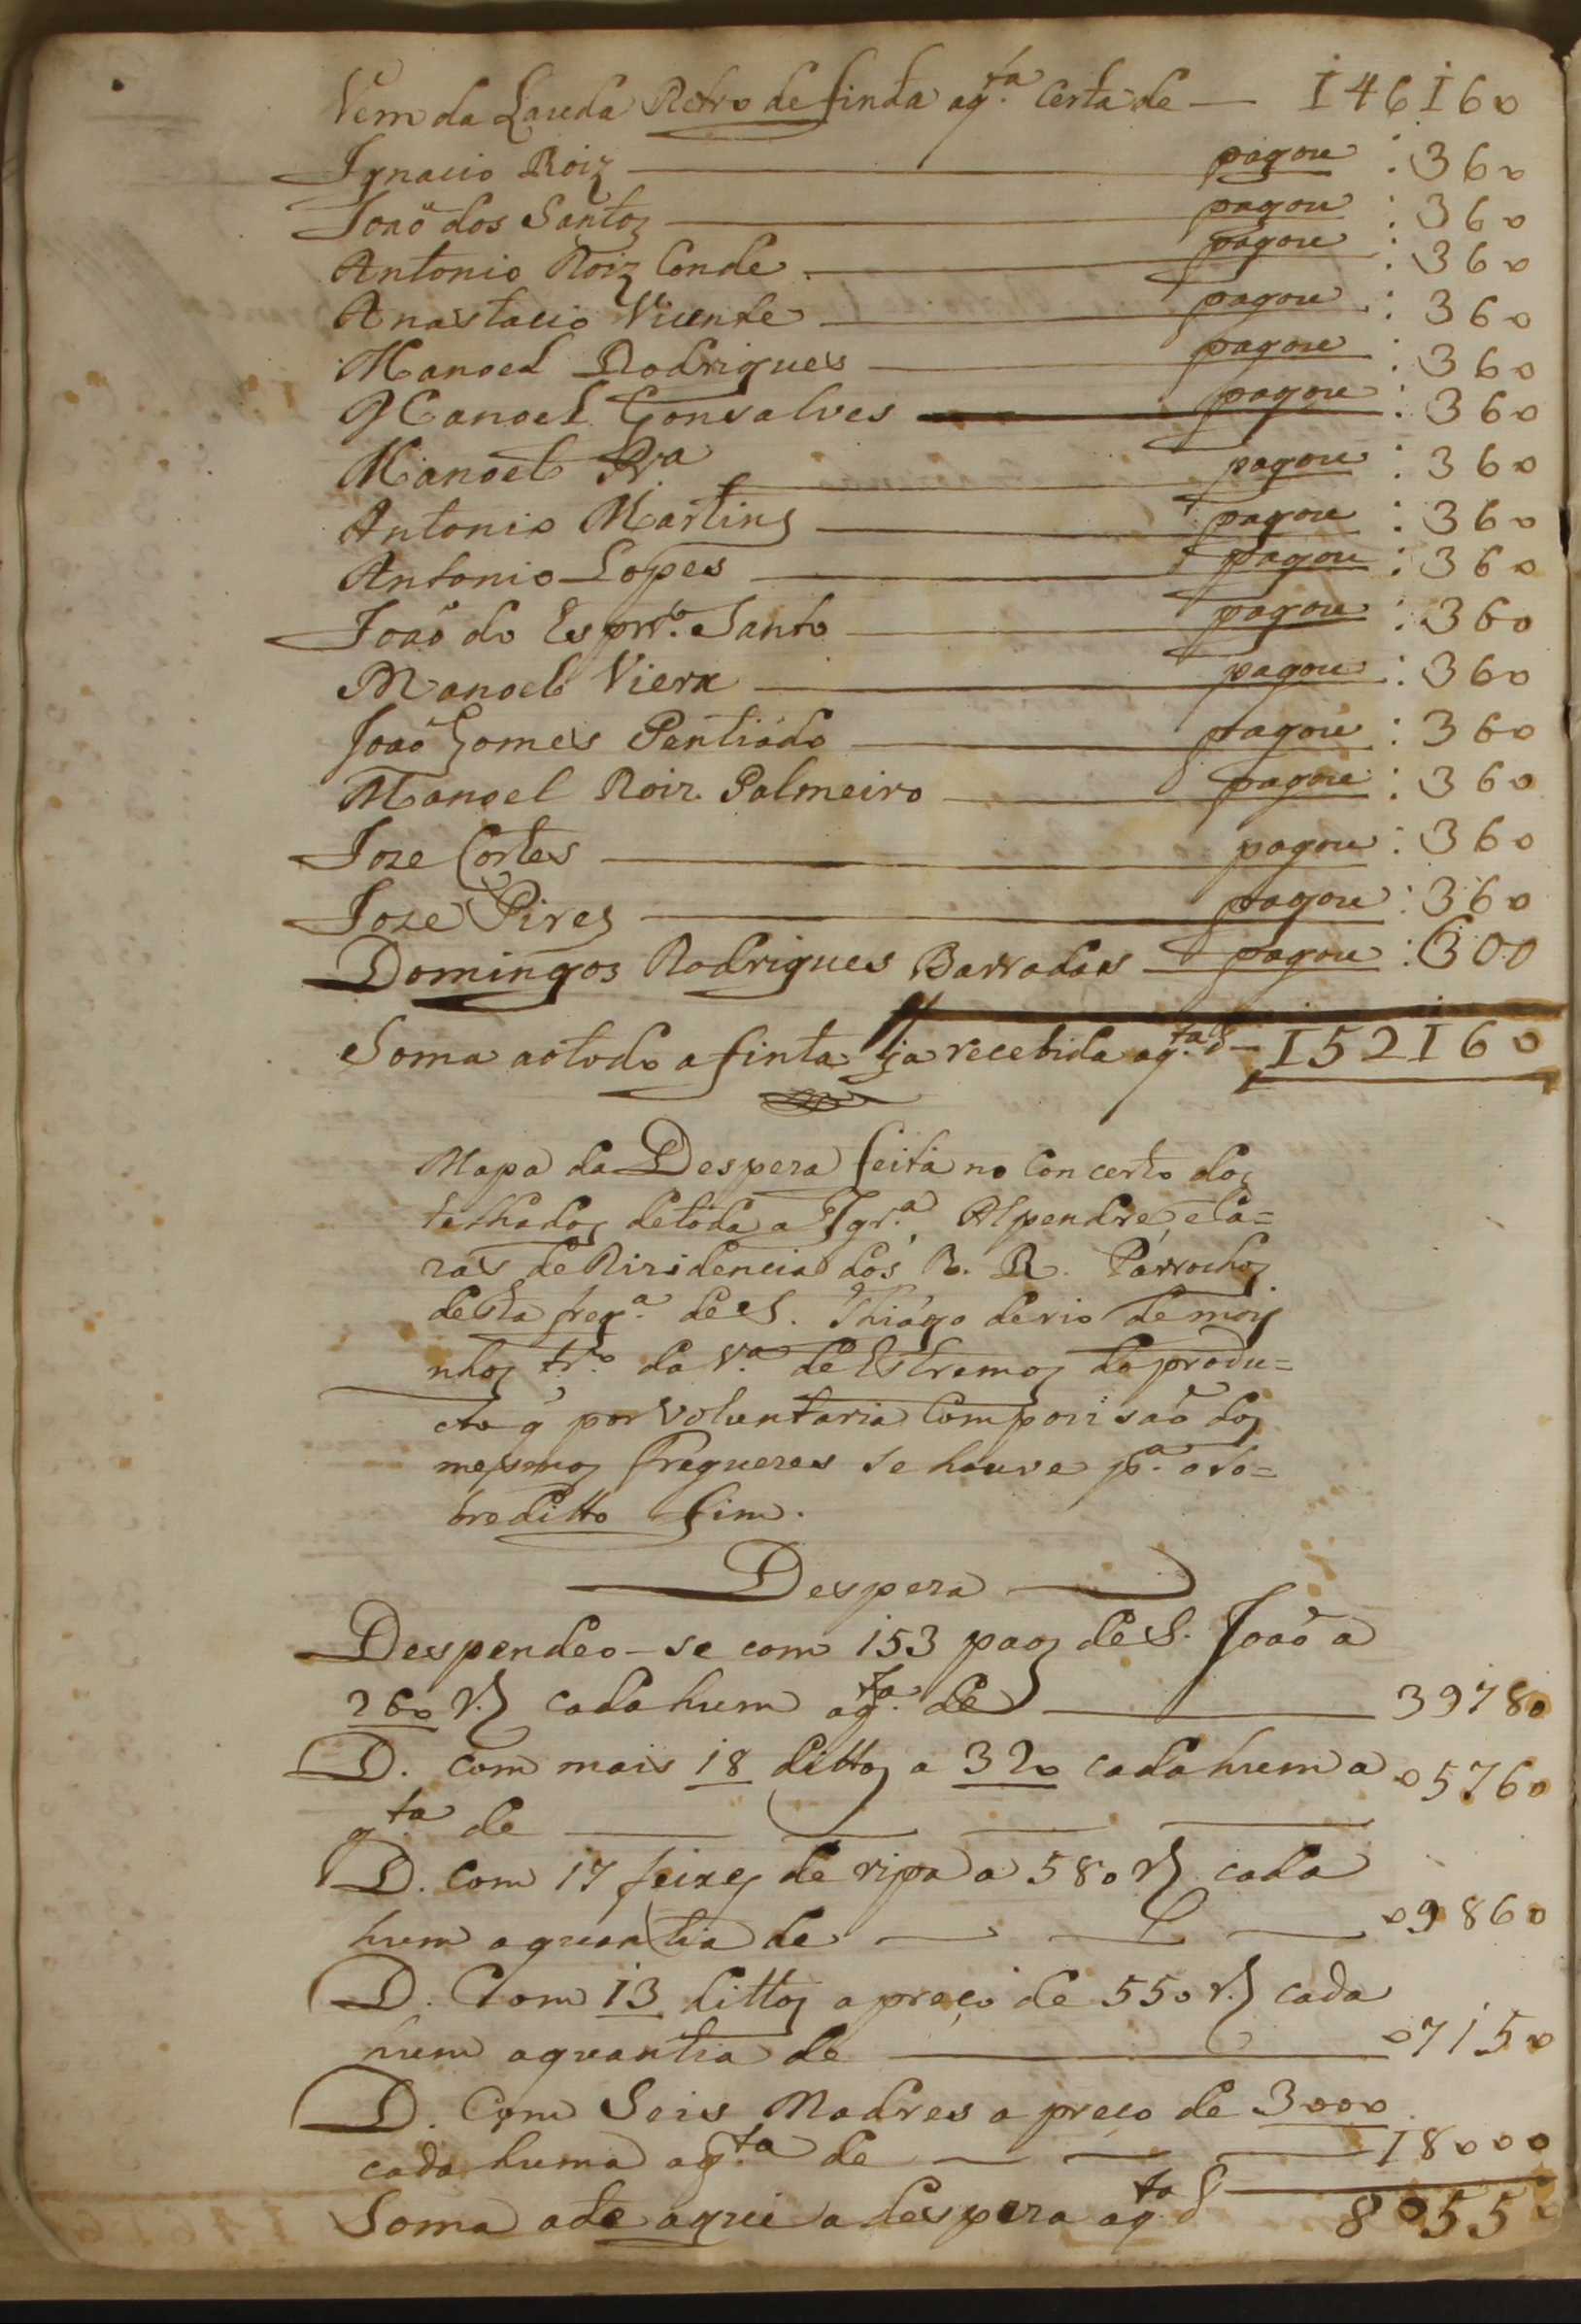 Vem da Lauda Retro de finta aq.ta certa de — 146160
Ignacio Roiz — pagou : 360
João dos Santos — pagou : 360
Antonio Roiz Conde — pagou : 360
Anastacio Vicente — pagou : 360
Manoel Rodrigues — pagou : 360
Manoel Gonsalves — pagou : 360
Manoel Pra — pagou : 360
Antonio Martins — pagou : 360
Antonio Lopes — pagou : 360
João do Esprto. Santo — pagou : 360
Manoel Viera — pagou : 360
João Gomes Pentiádo — pagou : 360
Manoel Roiz Palmeiro — pagou : 360
Joze Cortes — pagou : 360
Joze Pires — pagou : 360
Domingos Rodrigues Barradas — pagou : 600
Soma ao todo a finta ja recebida aq.ta d — 152160
Mapa da Despeza feita no Concerto dos
telhados de tóda a Igr.a, Alpendre, e Ca=
zas de Rizidencia dos R. R. Párrochos
desta freg.a de S. Thiágo de rio de moi
nhos tr.o da V.a de Estremos do produ=
cto q̃ por voluntaria Compozisão dos
mesmos Freguezes se houve p.a o so=
breditto fim.
Despeza
Despendeo-se com 153 paos de S. João a
260 rs cada hum aq.ta de — 39780
D. com mais 18 dittos a 320 cada hum a
q.ta de — 05760
D. Com 17 feixes de ripa a 580 rs cada
hum a quantia de — 09860
D. Com 13 dittos a preço de 550 rs cada
hum a quantia de — 07150
D. Com Seis Madres a preço de 3000
cada huma aq.ta de — 18000
Soma ade aqui a despeza aq.ta d — 80550